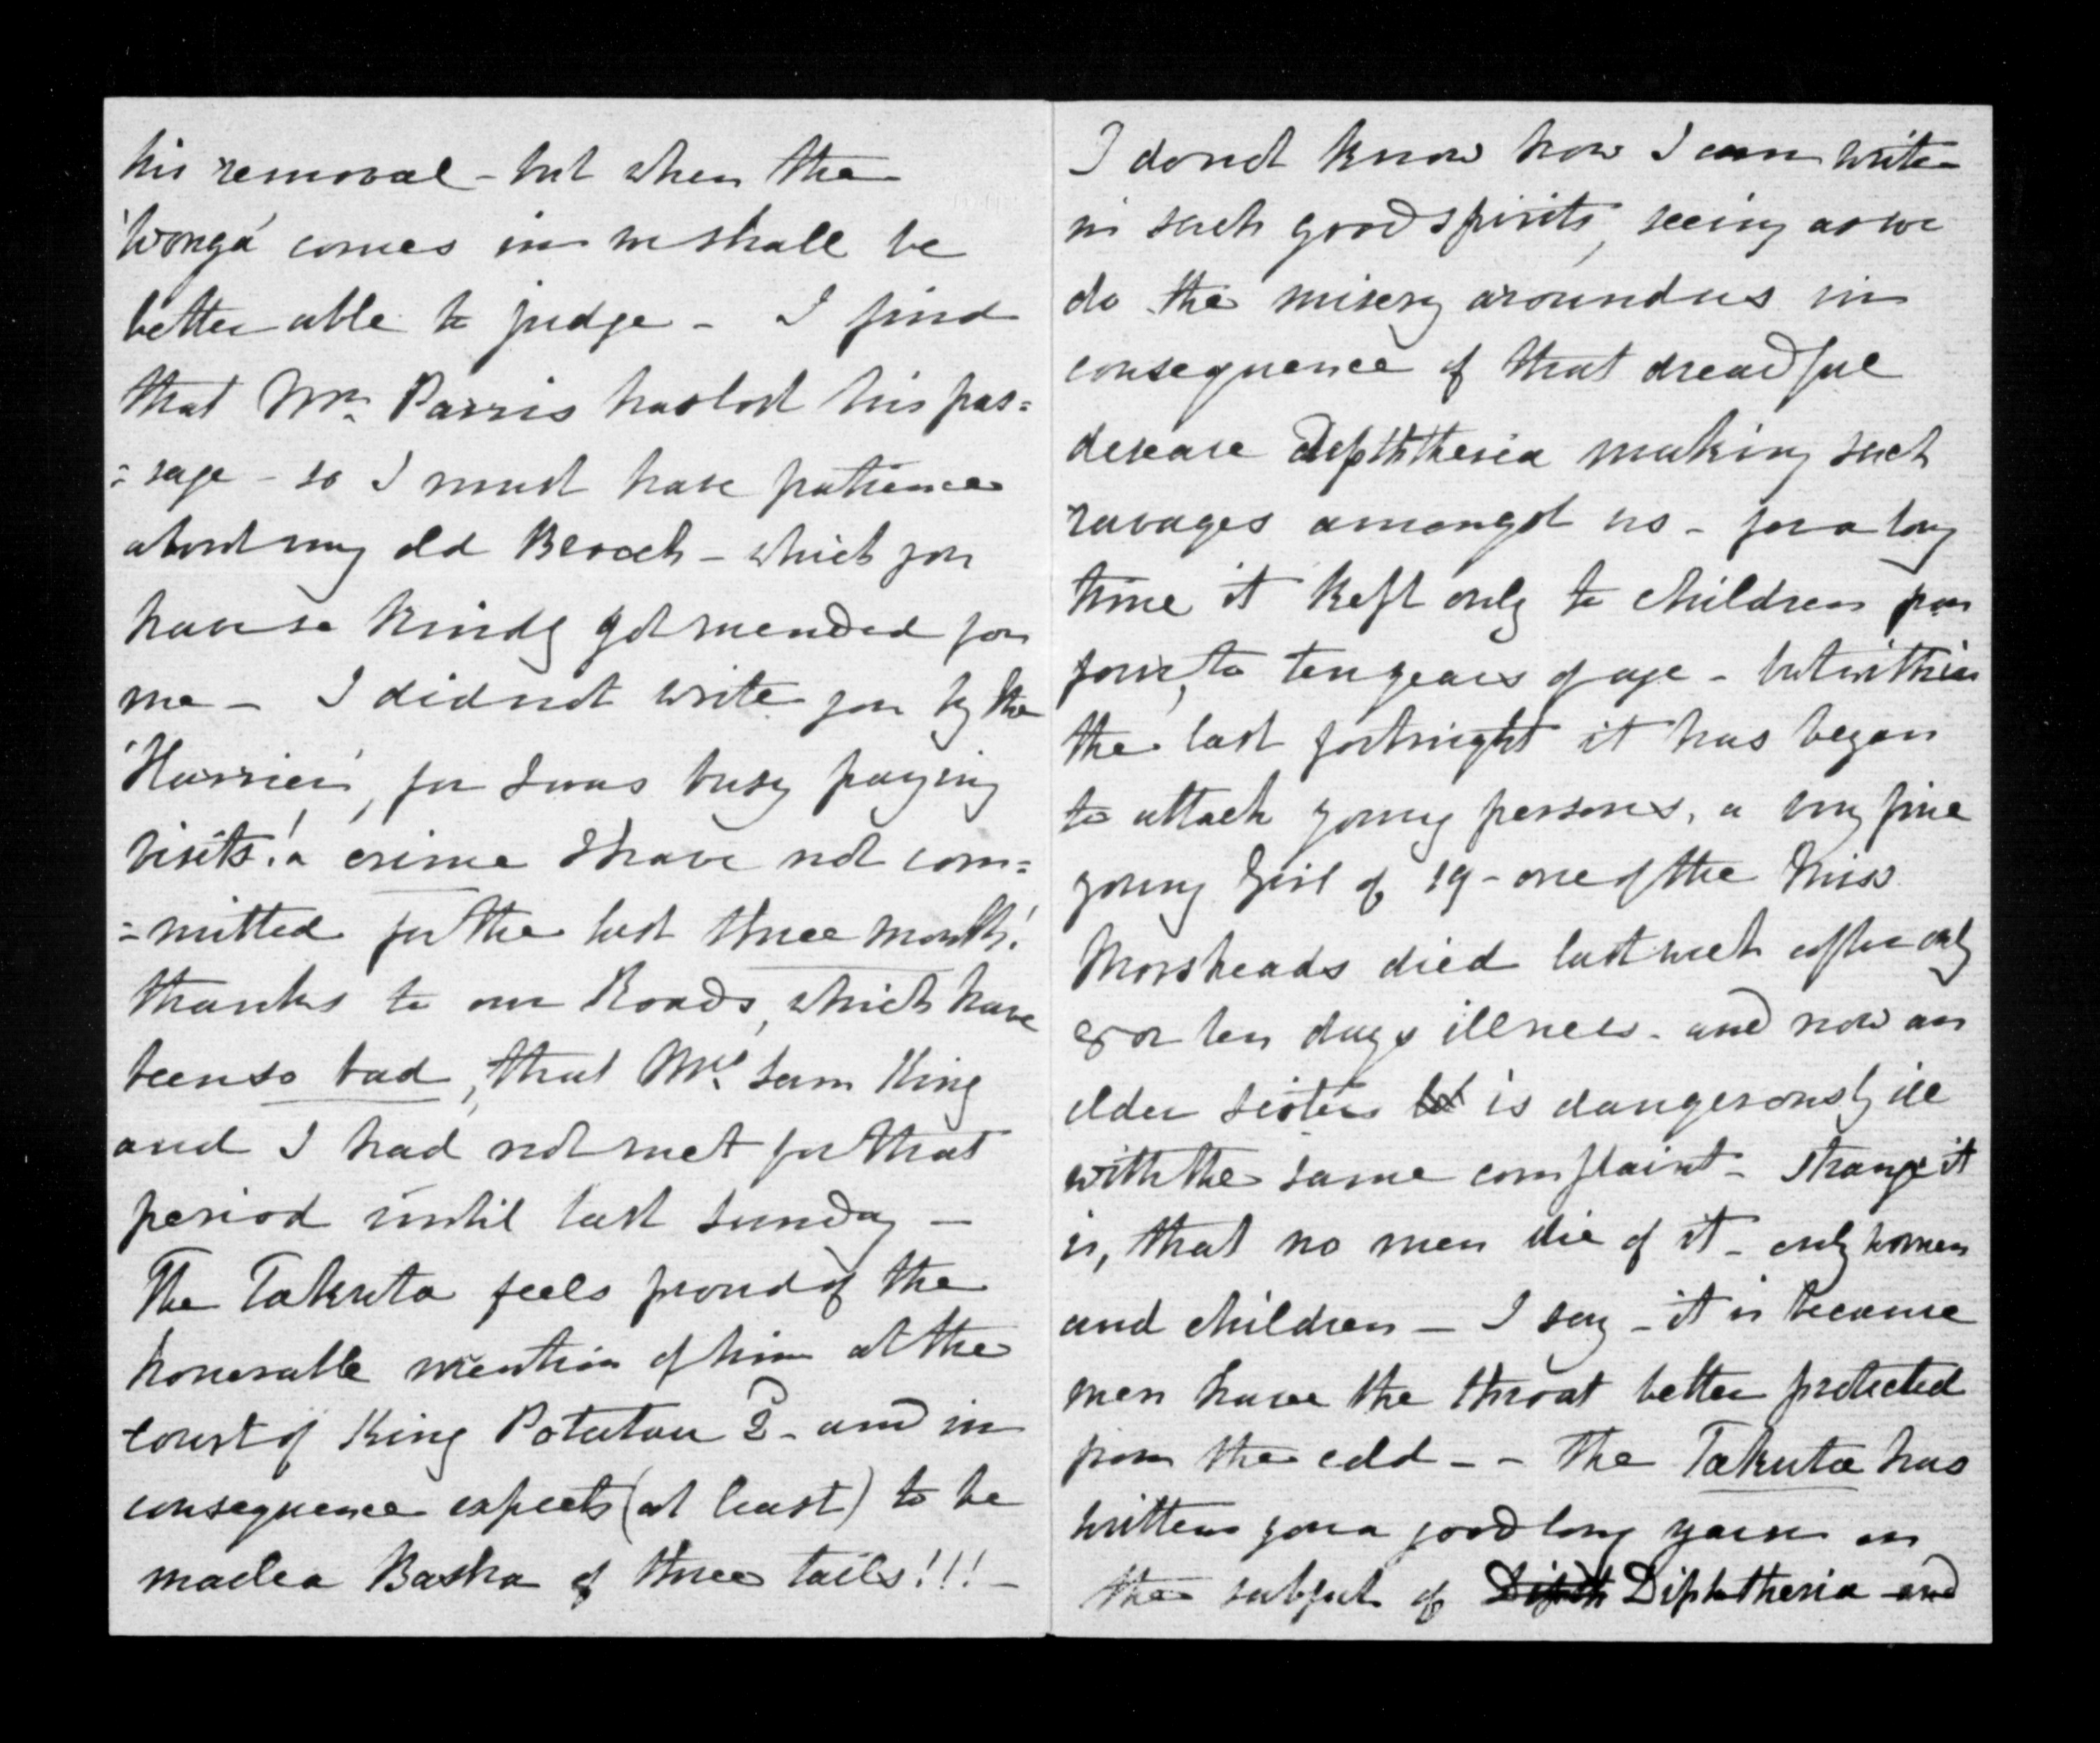 his removal - but when the
'Wonga' comes in we shall be
better able to judge - I find
that Mr. Parris has lost his pas=
=sage - so I must have patience
about my old Brooch - which you
have so kindly got mended for
me - I did not write you by the
'Harrier', for I was busy paying
visits! a crime I have not com=
=mitted for the last three months!
thanks to our Roads, which have
been so bad, that Mrs. Sam King
and I had not met for that
period until last Sunday -
The Takuta feels proud of the
honorable mention of him at the
court of King Potatau 2 - and in
consequence expects (at least) to be
made a Basha of three tails!!! -
I do not know how I can write
in such good spirits, seeing as we
do the misery around us in
consequence of that dreadful
desease Dipththeria making such
ravages amongst us - for a long
time it kept only to children from
four, to ten years of age - but within
the last fortnight it has began
to attack young persons, a very fine
young Girl of 19 - one of the Miss
Morsheads died last week after only
8 or ten days illness - and now an
elder sister is dangerously ill
with the same complaint - strange it
is, that no men die of it - only women
and children - I say - it is because
men have the throat better protected
from the cold - - The Takuta has
written you a good long yarn on
the subject of Diphtheria and